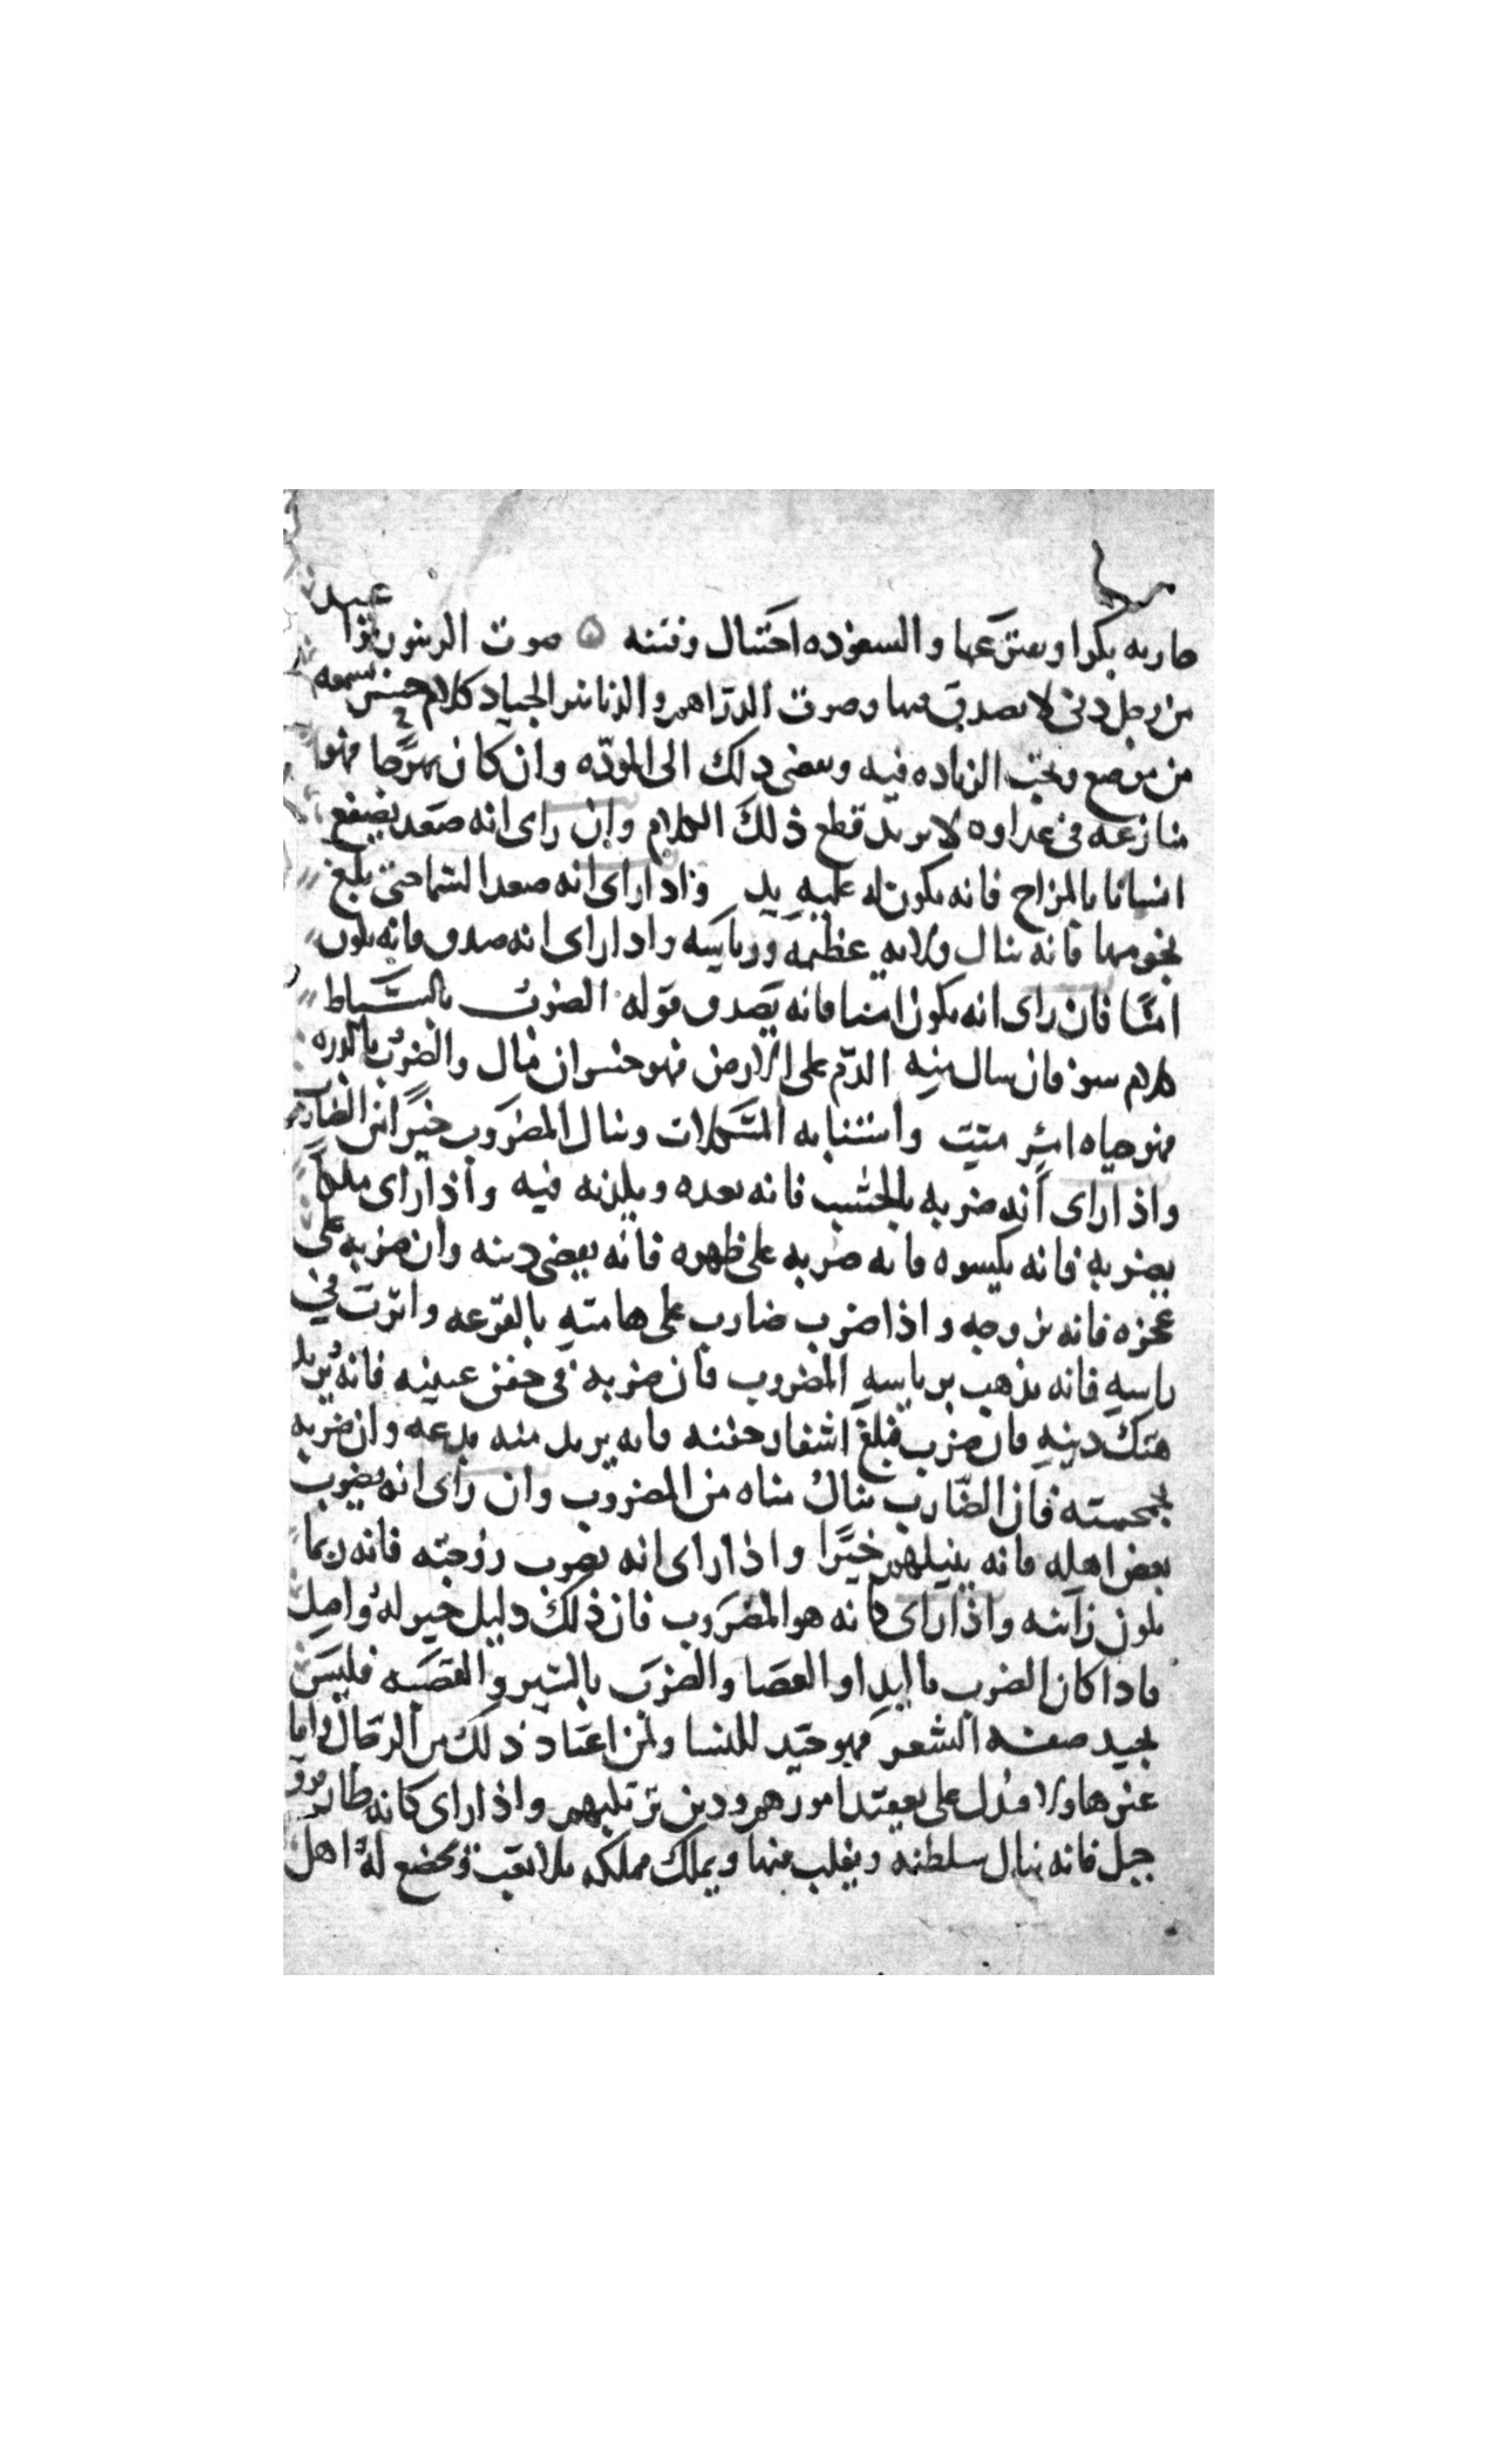 جاريه بكرا ويعتز عنها والسعوده احتيال وفتنه ۞ صوت الزيتون نزا عبد
من رجل دني لا يصدق فيها وصوت الدراهم والدنانير الجياد كلام حسن يسمعه
من موضع ويحب الزياده فيه ويفضي ذلك الى المودّه وان كان بهرجا فهو
منازعه في عداوه لا يريد قطع ذلك الكلام وان راى انه صعد يصفع
انسانا بالمزاح فانه يكون له عليه يد واذا راى انه صعد السما حتى بلغ
نجومها فانه ينال ولايه عظيمه ورياسه واذا راى انه صدق فانه يكون
امنًا فان راى انه يكون امنا فانه يصدق قوله الضرب بالسياط
كلام سوء فان سال منه الدّم على الارض فهو خسران مال والضرب بالدره
فهو حياه امر ميت واستنابه المشكلات وينال المضروب خيرًا من الضارب
واذا راى انه ضربه بالخشب فانه يعده ويكذبه فيه واذا راى ملكا
يضربه فانه يكسوه فانه ضربه على ظهره فانه يقضى دينه وان ضربه على
عجزه فانه يزوجه واذا ضرب ضارب على هامته بالمقرعه واثرت في
راسه فانه يذهب برياسه المضروب فان ضربه في جفن عينيه فانه يريد
هتك دينه فان ضرب فبلغ اشفار جفنه فانه يريد منه بدعه وان ضربه
بجمجمته فان الضّارب ينال مناه من المضروب وان راى انه يضرب
بعض اهله فانه ينيلهم خيرًا واذا راى انه يضرب زوجته فانه ربما
يكون زانيه واذا راى كانه هو المضروب فان ذلك دليل خير له واصل
فاذا كان الضرب باليد او العصا والضرب بالسير والقصبه فليس
بجيد صفه الشعر فهو جيد للنسا ولمن اعتاد ذلك من الرجال واما
غيرها ولا فيدل على تعقد امورهم ودين يرتكبهم واذا راى كانه طار فوق
جبل فانه ينال سلطنه ويغلب فيها ويملك مملكه بلا تعب ويخضع له اهل